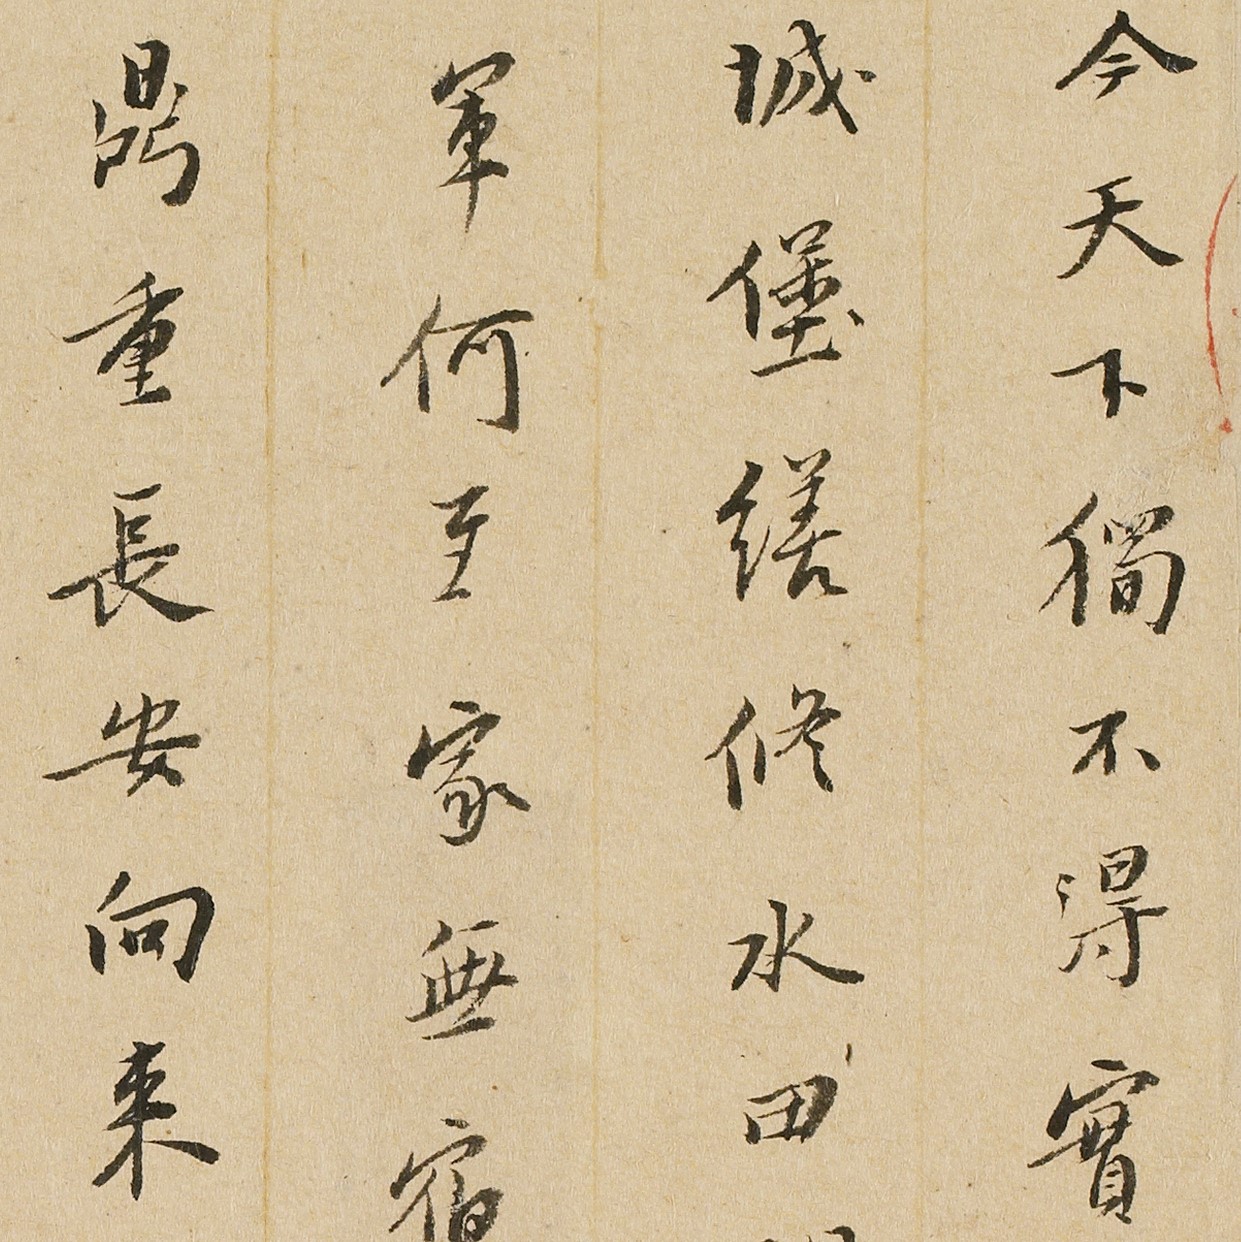 今天下獨不得實
城堡繕修水田
軍何至家無宿
鼎重長安向来